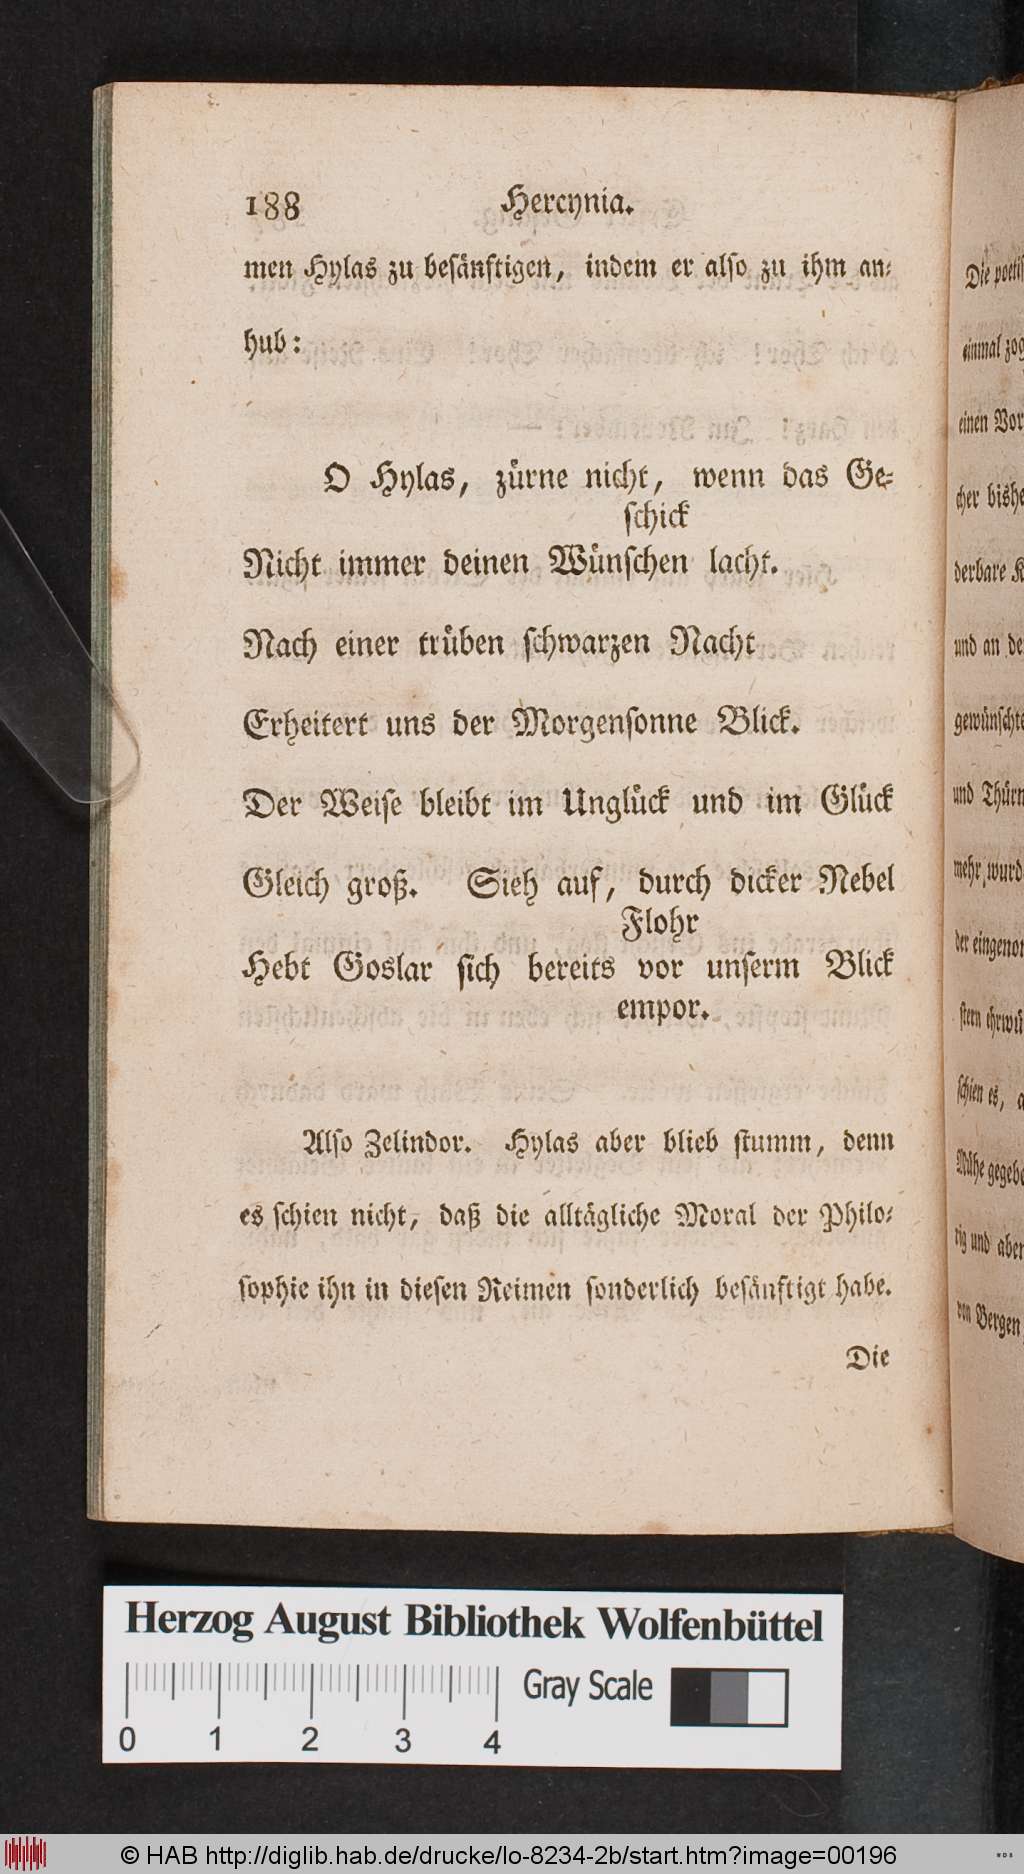 188 Hercynia.
men Hylas zu besänftigen, indem er also zu ihm an-
hub:
O Hylas, zürne nicht, wenn das Ge-
schick
Nicht immer deinen Wünschen lacht.
Nach einer trüben schwarzen Nacht
Erheitert uns der Morgensonne Blick.
Der Weise bleibt im Unglück und im Glück
Gleich groß. Sieh auf, durch dicker Nebel
Flohr
Hebt Goslar sich bereits vor unserm Blick
empor.
Also Zelindor. Hylas aber blieb stumm, denn
es schien nicht, daß die alltägliche Moral der Philo-
sophie ihn in diesen Reimen sonderlich besänftigt habe.
Die
Die
einmal
einen
cher
derbare
und an
und
mehr
der
schien es,
Mühe
und aber
von Bergen
Herzog August Bibliothek Wolfenbüttel
Gray Scale
0 1 2 3 4
© HAB http://diglib.hab.de/drucke/lo-8234-2b/start.htm?image=00196